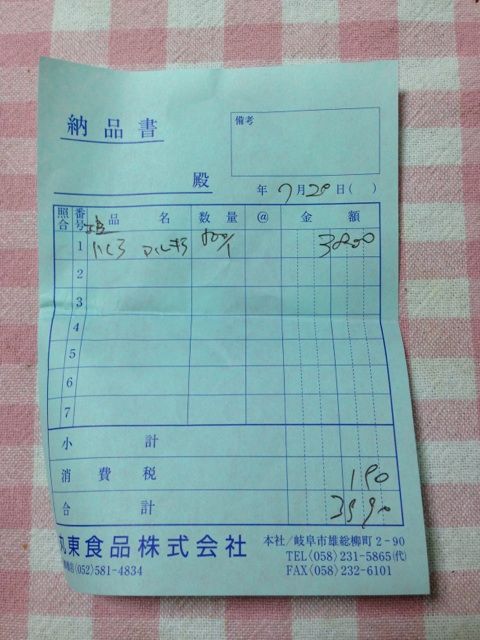 納品書
備考
殿
年 7月29日( )
照合 番号 品名 数量 @ 金額
1 いくら 500/1 3800
2
3
4
5
6
7
小計
消費税 190
合計 3990
東食品株式会社
本社/岐阜市雄総柳町2-90
TEL(058)231-5865(代)
(052)581-4834
FAX(058)232-6101